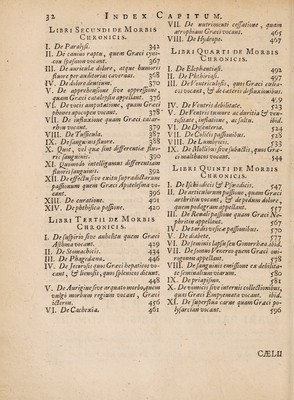 32 INDEX CAPITUM.
LIBRI SECUNDI DE MORBIS
CHRONICIS.
I. De Paralysi. 342
II. De canino raptu, quem Græci cyni-
con spasmon vocant 367
III. De auricula dolore, atque humoris
fluore per auditorias cavernas. 368
IV. De dolore dentium. 370
V. De apprehensione sive oppressione,
quam Græci catalepsin appellant. 376
VI. De vocis amputatione, quam Græci
phones apocopen vocant 378
VII. De influxione quam Græci catar-
rhon vocant. 379
VIII. De Tussicula. 387
IX. De sanguinis fluore. 388
X. Quot, vel quæ sint differentiæ fluo-
ris sanguinis. 390
XI. Quomodo intelligimus differentiam
fluoris sanguinis. 392
XII. De effectu sive exitu supradictorum
passionum quem Græci Apotelesma vo-
cant. 395
XIII. De curatione. 401
XIV. De phthisica passione. 420
LIBRI TERTII DE MORBIS
CHRONICIS.
I. De suspirio sive anhelitu quem Græci
Asthma vocant. 429
II. De Stomachicis. 434
III. De Phagedæna, 446
IV. De Jecorosis quos Græci hepaticos vo-
cant, & lienosis, quos splenicos dicunt.
448
V. De Aurigine sive arquato morbo, quem
vulgo morbum regium vocant, Græci
icteron. 456
VI. De Cachexia. 461
VII. De nutrimenti cessatione, quam
atrophiam Græci vocant. 465
VIII. De Hydrope. 467
LIBRI QUARTI DE MORBIS
CHRONICIS.
I. De Elephantiasi. 492
II. De Phthiriasi. 497
III. De Ventriculosis, quos Græci cœlia-
cos vocant,
419
IV. De Ventris debilitate. 523
V. De Ventris tumore ac duritia & ven-
ibid.
VI. De Dysenteria. 524
VII. De Colicis passionibus. 528
VIII. De Lumbricis. 533
IX. De Mollibus sive subactis, quos Græ-
ci malthacos vocant 544
LIBRI QUINTI DE MORBIS
CHRONICIS.
I. De Ischiadicis & Psoadicis. 547
II. De articulorum passione, quam Græci
arthritin vocant, & de pedum dolore,
quem podagram appellant. 557
III. De Renali passione quam Græci Ne-
phritin appellant. 567
IV. De tardivesicæ passionibus. 570
V. De diabete. 577
VI. ibid.
VII. De somno Venereo quem Græci onei-
rogonon appellant. 578
VIII. De sanguinis emissione ex debilita-
te seminalium viarum. 580
IX. De priapismo. 581
X. De vomicis sive internis collectionibus,
quas Græci Empyemata vocant. ibid.
XI. De superflua carne quam Græci po-
lysarcian vocant. 596
CÆLII